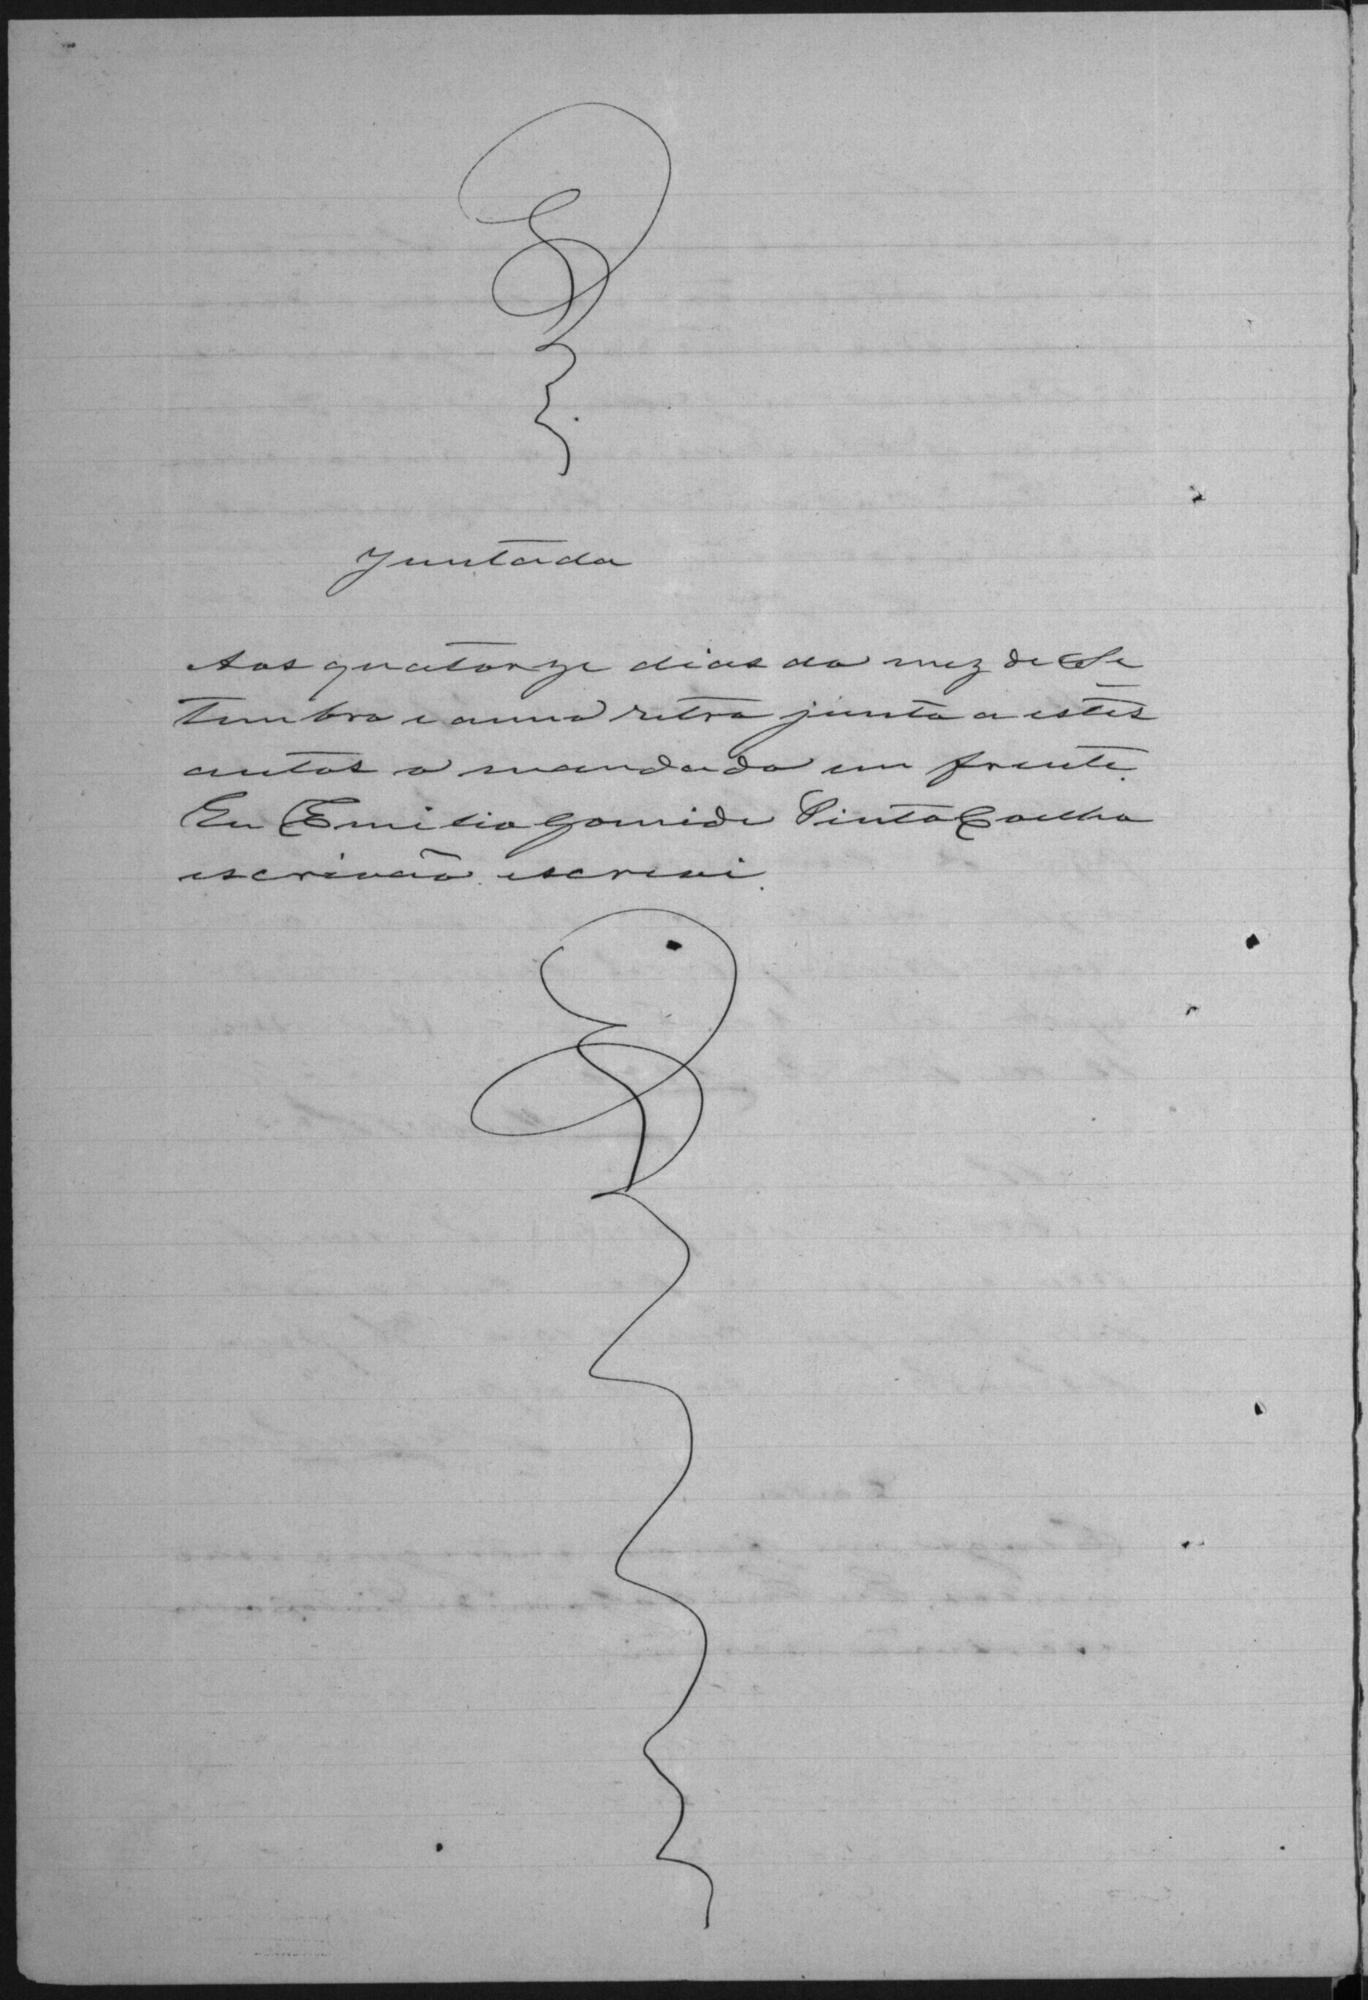 Juntada
Aos quatorze dias do mez de Se
tembro e anno retro junto a estes
autos o mandado em frente.
Eu Emilio Gomide Pinto Coelho
escrivão escrevi.